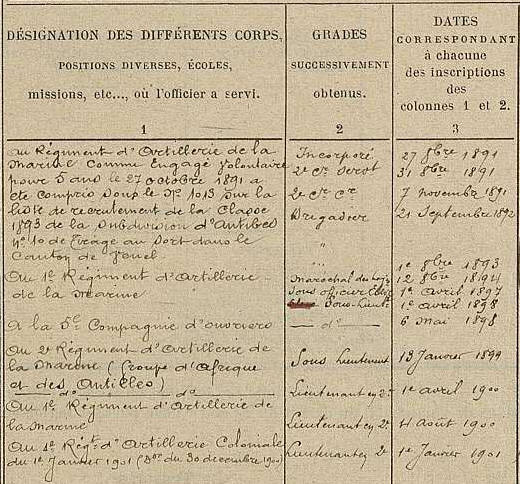 DÉSIGNATION DES DIFFÉRENTS CORPS,
POSITIONS DIVERSES, ÉCOLES,
missions, etc..., où l'officier a servi.
1
GRADES
SUCCESSIVEMENT
obtenus.
2
DATES
CORRESPONDANT
à chacune
des inscriptions
des
colonnes 1 et 2.
3
Au Régiment d'Artillerie de la
Marine comme Engagé volontaire
pour 5 ans le 27 octobre 1891 a
été compris sous le No 1013 sur la
liste de recrutement de la Classe
1893 de la subdivision d'Antibes
No 10 de tirage au sort dans le
Canton de
Au 1er Régiment d'Artillerie
de la Marine
A la 5e Compagnie d'ouvriers
Au 2e Régiment d'Artillerie de
la Marine (Groupe d'Afrique
et des Antilles)
do do
Au 1er Régiment d'Artillerie de
la Marine
Au 1er Régt d'Artillerie Coloniale
du 1er Janvier 1901 (Don du 30 decembre 1900)
Incorporé
2e Cr Servt
2e Cr Cr
Brigadier
"
"
Maréchal des logis
Sous officier
Sous-Lieut
do
Sous Lieutenant
Lieutenant en 2e
Lieutenant en 2e
Lieutenant en 2e
27 8bre 1891
31 8bre 1891
7 novembre 1891
21 Septembre 1892
1er 8bre 1893
12 8bre 1894
1er avril 1897
1er avril 1898
6 Mai 1898
13 Janvier 1899
1er avril 1900
4 Août 1900
1er Janvier 1901